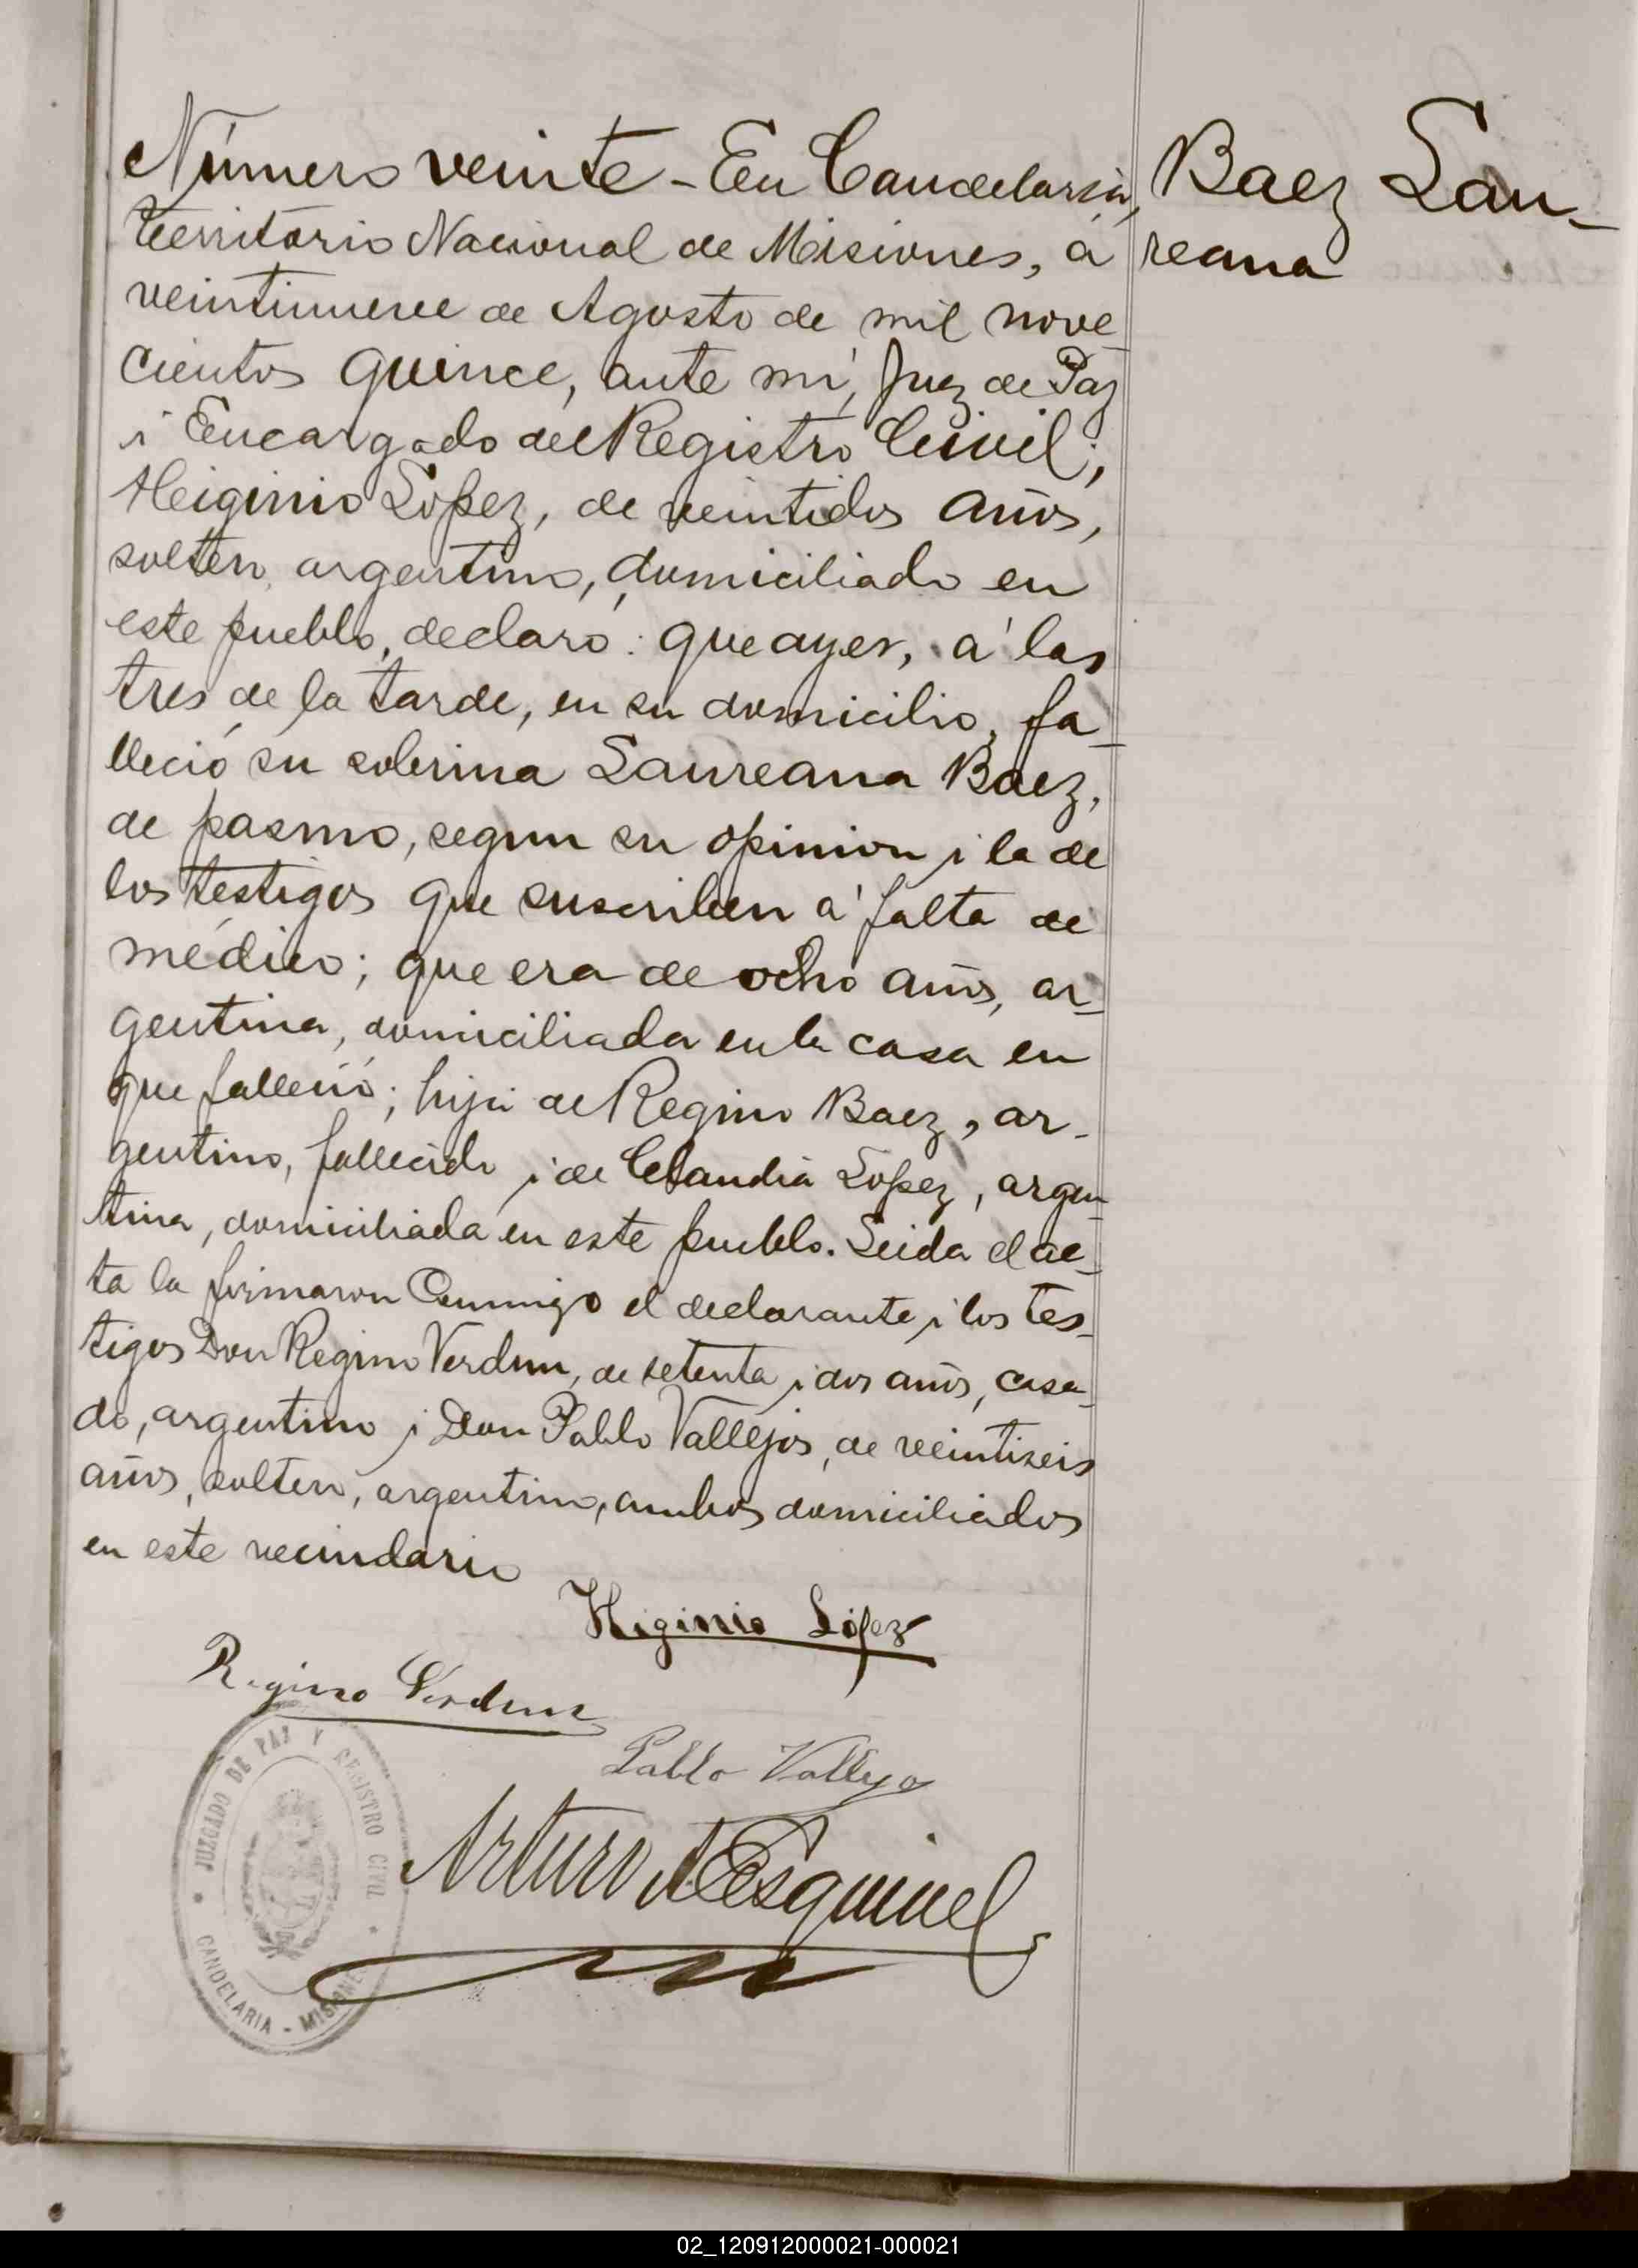 Número veinte - En Candelaria,
Baez Lau-
reana
Territorio Nacional de Misiones, á
veintinueve de Agosto de mil nove-
cientos quince, ante mi, Juez de Paz
i Encargado del Registro Civil;
Heiginio Lopez, de veintidos años,
soltero, argentino, domiciliado en
este pueblo, declaró: que ayer, á las
tres de la tarde, en su domicilio, fa-
lleció su sobrina Laureana Baez,
de pasmo, segun su opinion i la de
los testigos que suscriben á falta de
médico; que era de ocho años, ar-
gentina, domiciliada en la casa en
que falleció; hija de Regino Baez, ar-
gentino, fallecido i de Claudia Lopez, argen-
tina, domiciliada en este pueblo. Leida el ac-
ta la firmaron conmigo el declarante i los tes-
tigos Don Regino Verdun, de setenta i dos años, casa-
do, argentino i Don Pablo Vallejos, de veintiseis
años, soltero, argentino, ambos domiciliados
en este vecindario
Higinio López
Regino Verdun
Pablo Vallejos
Arturo A Esquivel
JUZGADO DE PAZ Y REGISTRO CIVIL
CANDELARIA - MISIONES
02_120912000021-000021